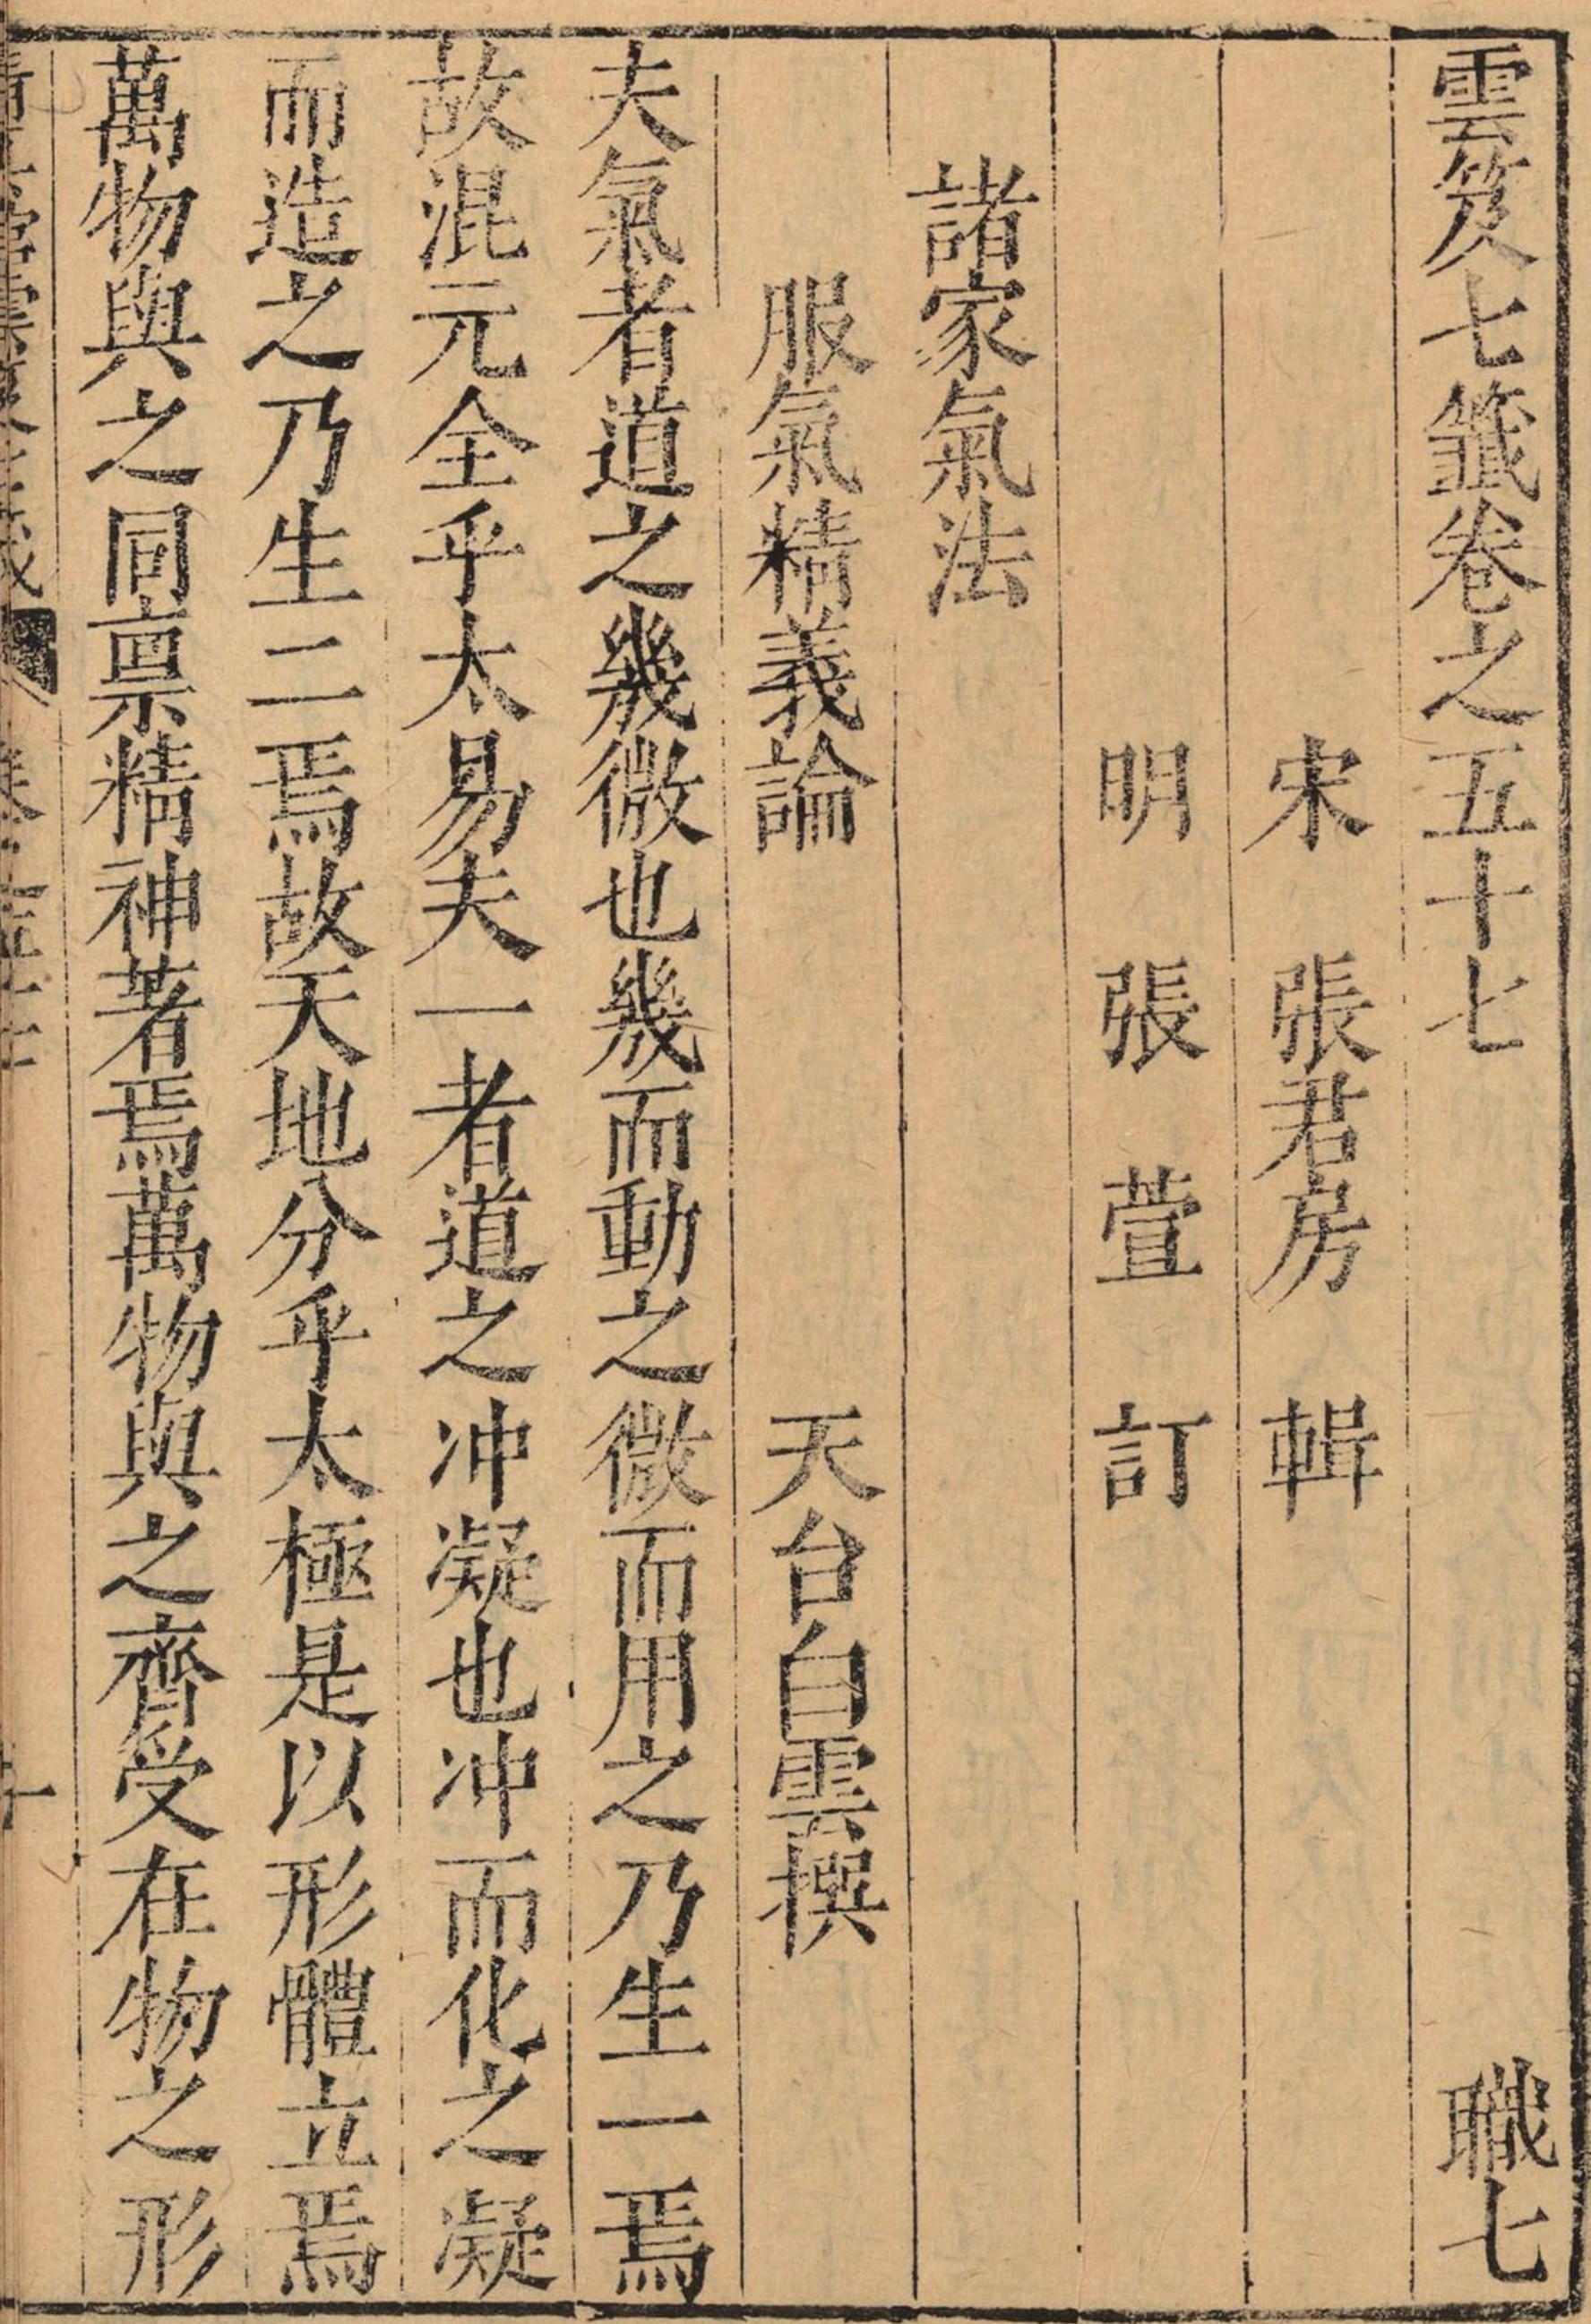 雲笈七籤卷之五十七 職七
宋 張君房 輯
明 張萱 訂
諸家氣法
服氣精義論 天台白雲撰
夫氣者道之幾微也幾而動之微而用之乃生一焉
故混元全乎太易夫一者道之冲凝也冲而化之凝
而造之乃生二焉故天地分乎太極是以形體立焉
萬物與之同禀精神著焉萬物與之齊受在物之形